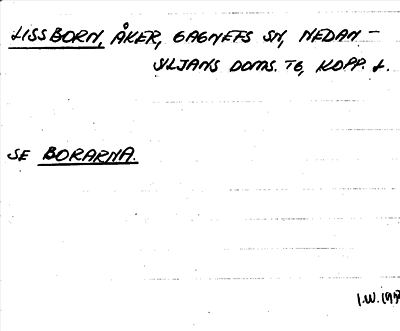 LISSBORN, ÅKER, GAGNEFS SN, NEDAN-
SILJANS DOMS. TG, KOPP. L.
SE BORARNA.
I.W.